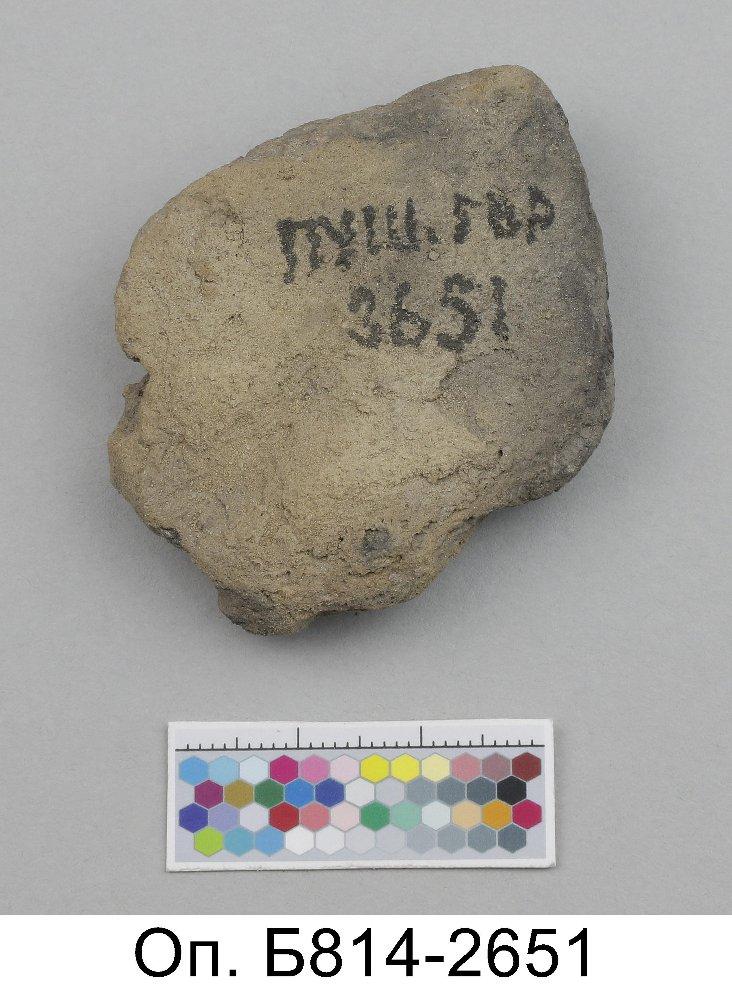 ПУШ.
2651
Оп. Б814-2651